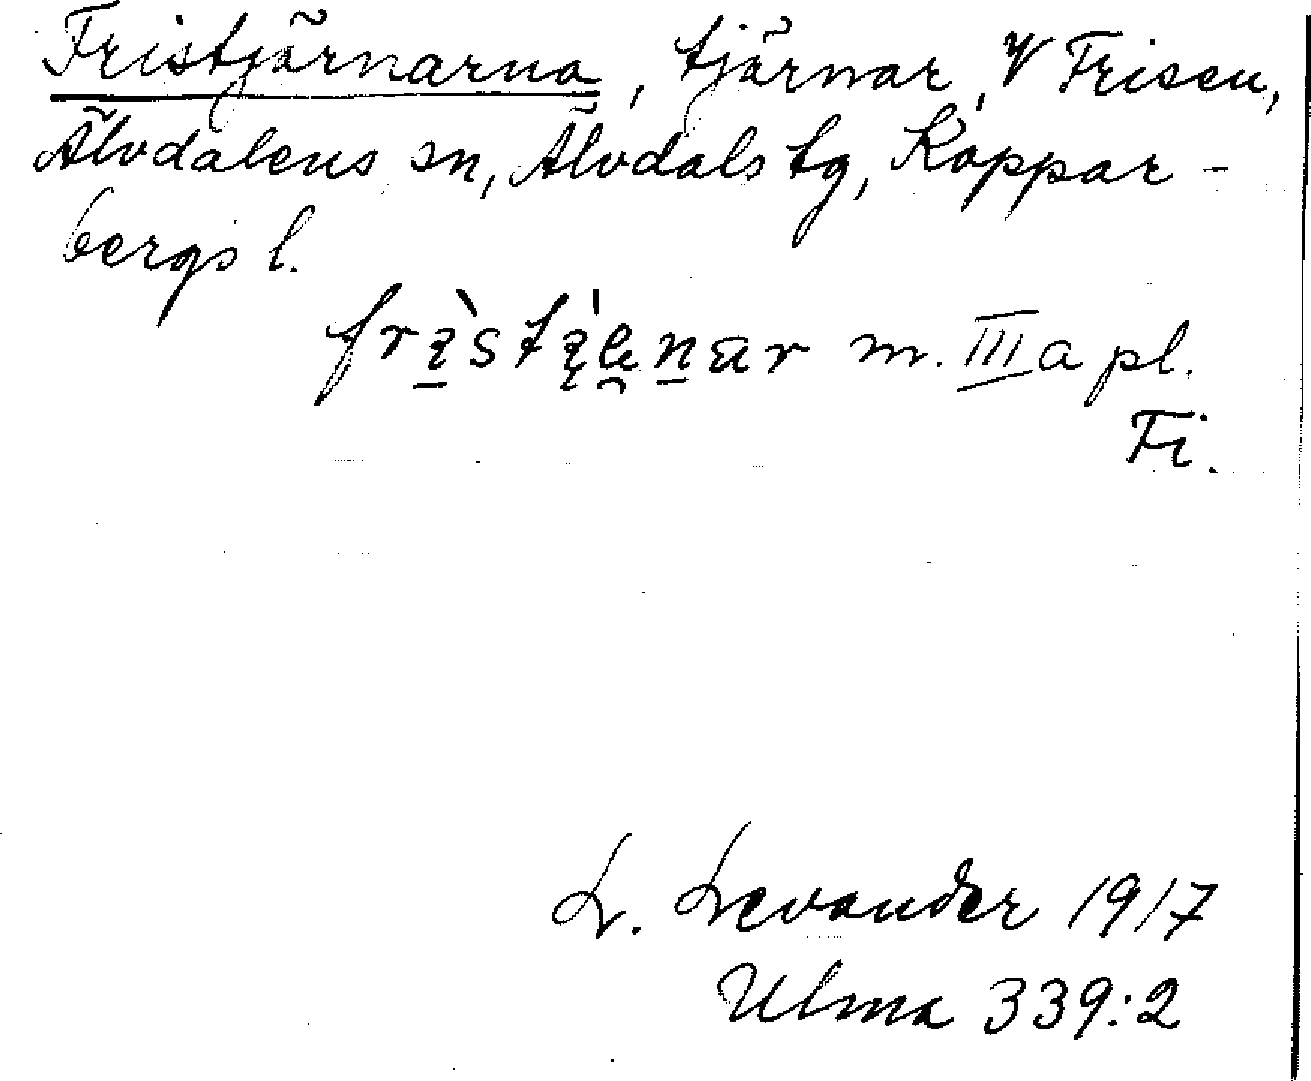 Fristjärnarna, tjärnar, V Frisen,
Älvdalens sn, Älvdals tg, Koppar-
bergs l.
m. III a pl.
Fi.
L. Levander 1917
Ulma 339:2